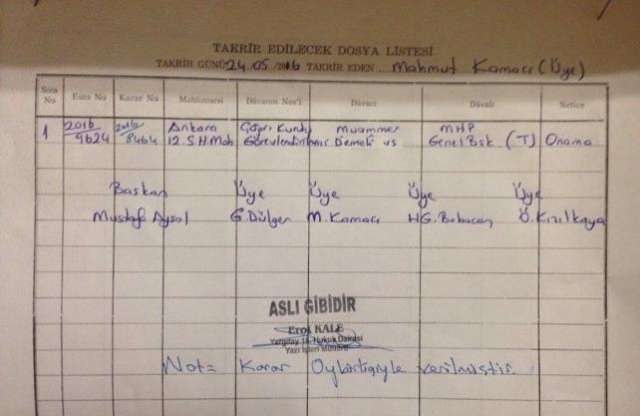 TAKRİR EDİLECEK DOSYA LİSTESİ
TAKRİR GÜNÜ 24.05.2016 TAKRİR EDEN Mahmut Kamacı (Üye)
Sıra No Esas No Karar No Mahkemesi Dâvanın Nev'i Dâvacı Dâvalı Netice
1 2016/9624 2016/8464 Ankara 12.S.H.Mah Çağrı Kurulu Görevlendirilmesi Muammer Demeli vs MHP Genel Bşk (T) Onama
Başkan Üye Üye Üye Üye
Mustafa Aysal G. Dülger M. Kamacı HG. Babacan Ö. Kızılkaya
ASLI GİBİDİR
Erol KALE
Yargıtay 18. Hukuk Dairesi
Yazı İşleri Müdürü
Not: Karar Oybirliğiyle verilmiştir.